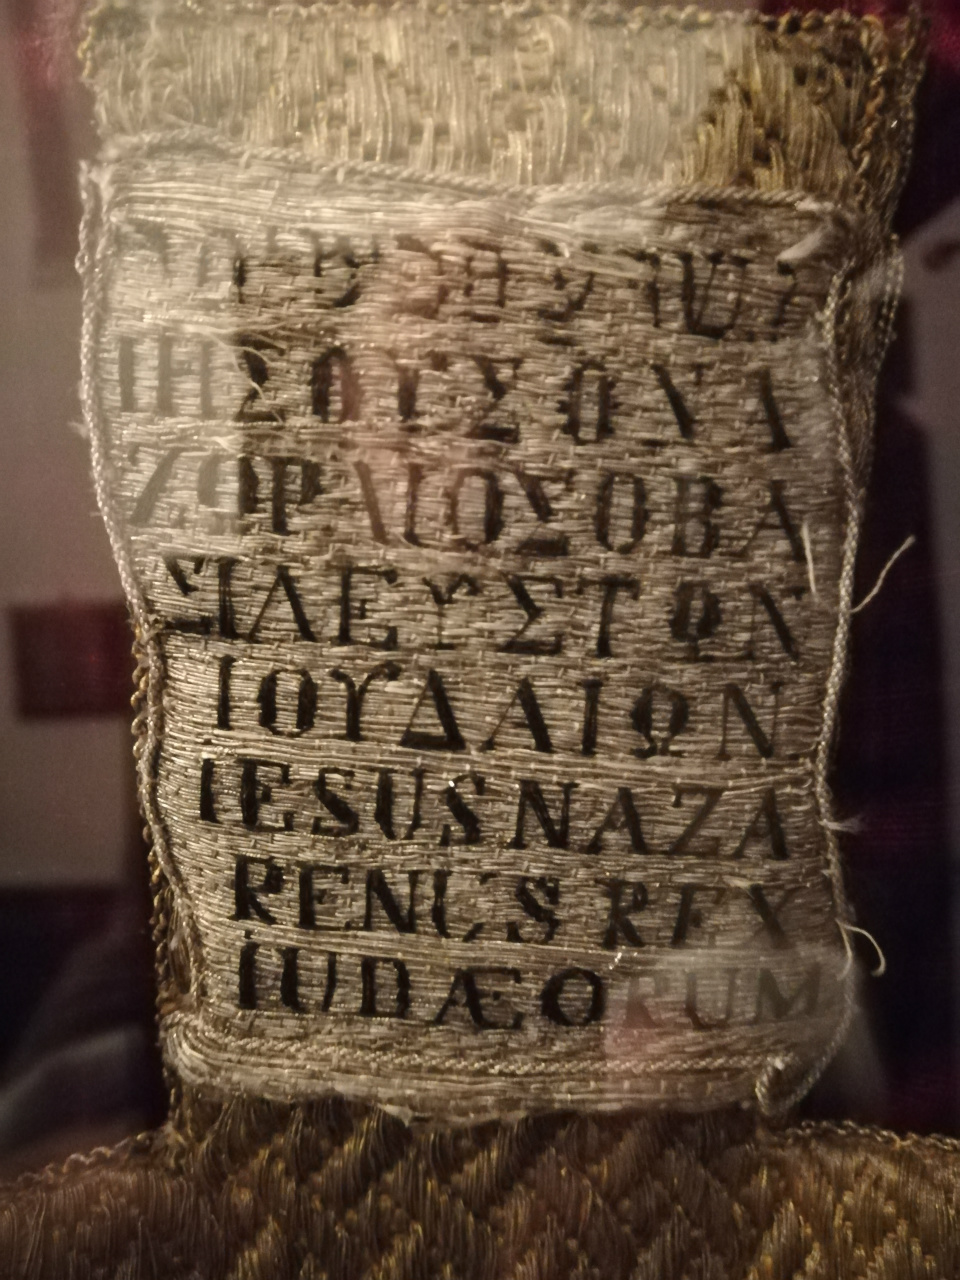 ΙΗΣΟΥΣ Ο ΝΑ
ΖΩΡΑΙΟΣ Ο ΒΑ
ΣΙΛΕΥΣ ΤΩΝ
ΙΟΥΔΑΙΩΝ
IESUS NAZA
RENUS REX
IUDÆORUM